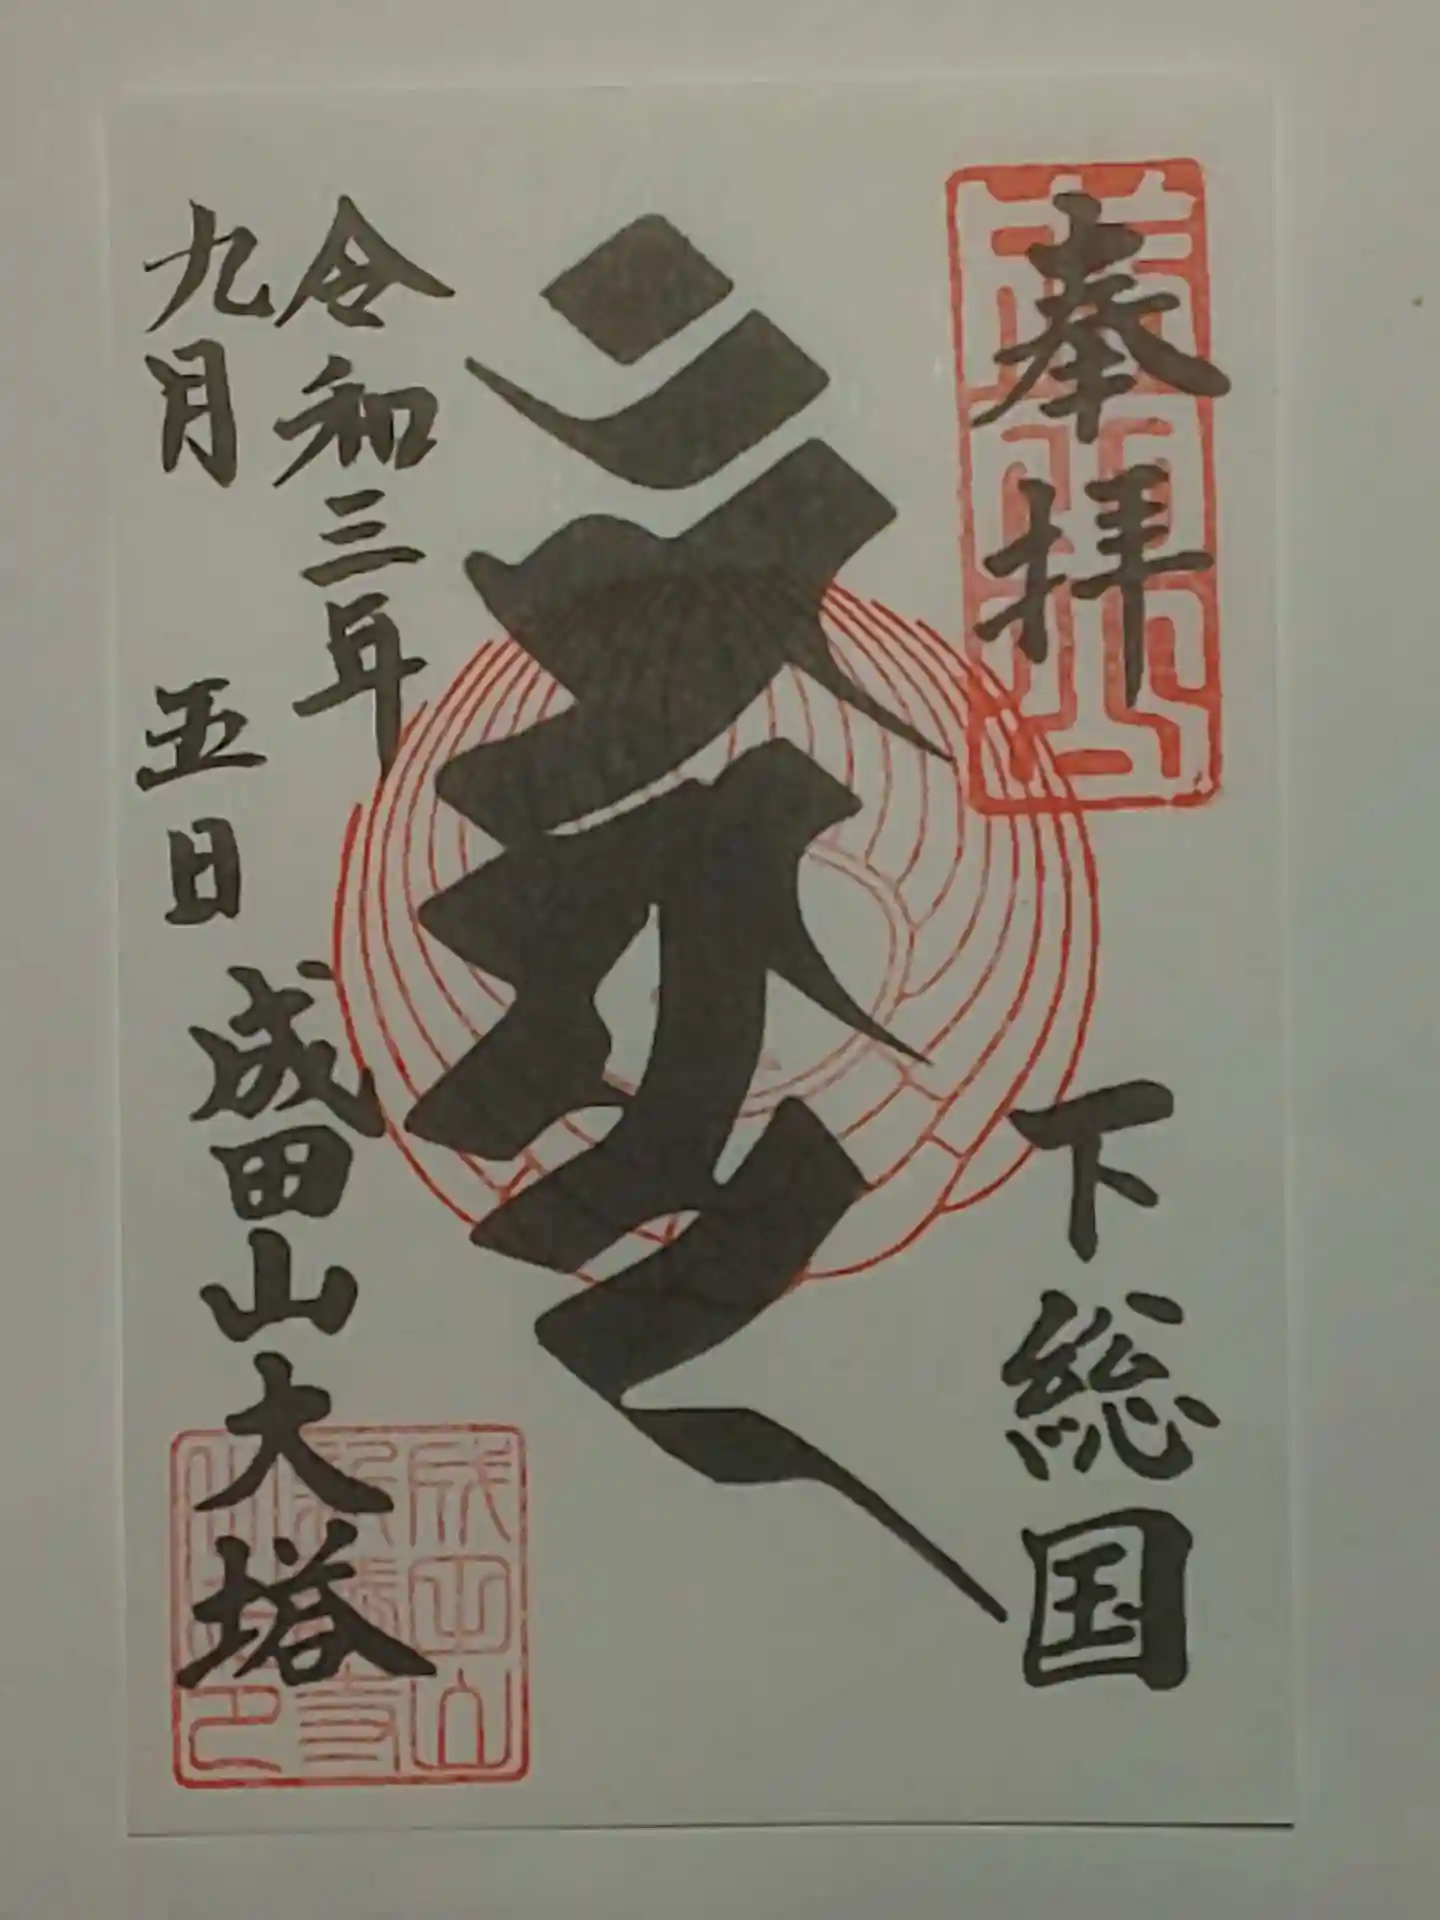 奉拝
下総国
令和三年
九月 五日
成田山大塔